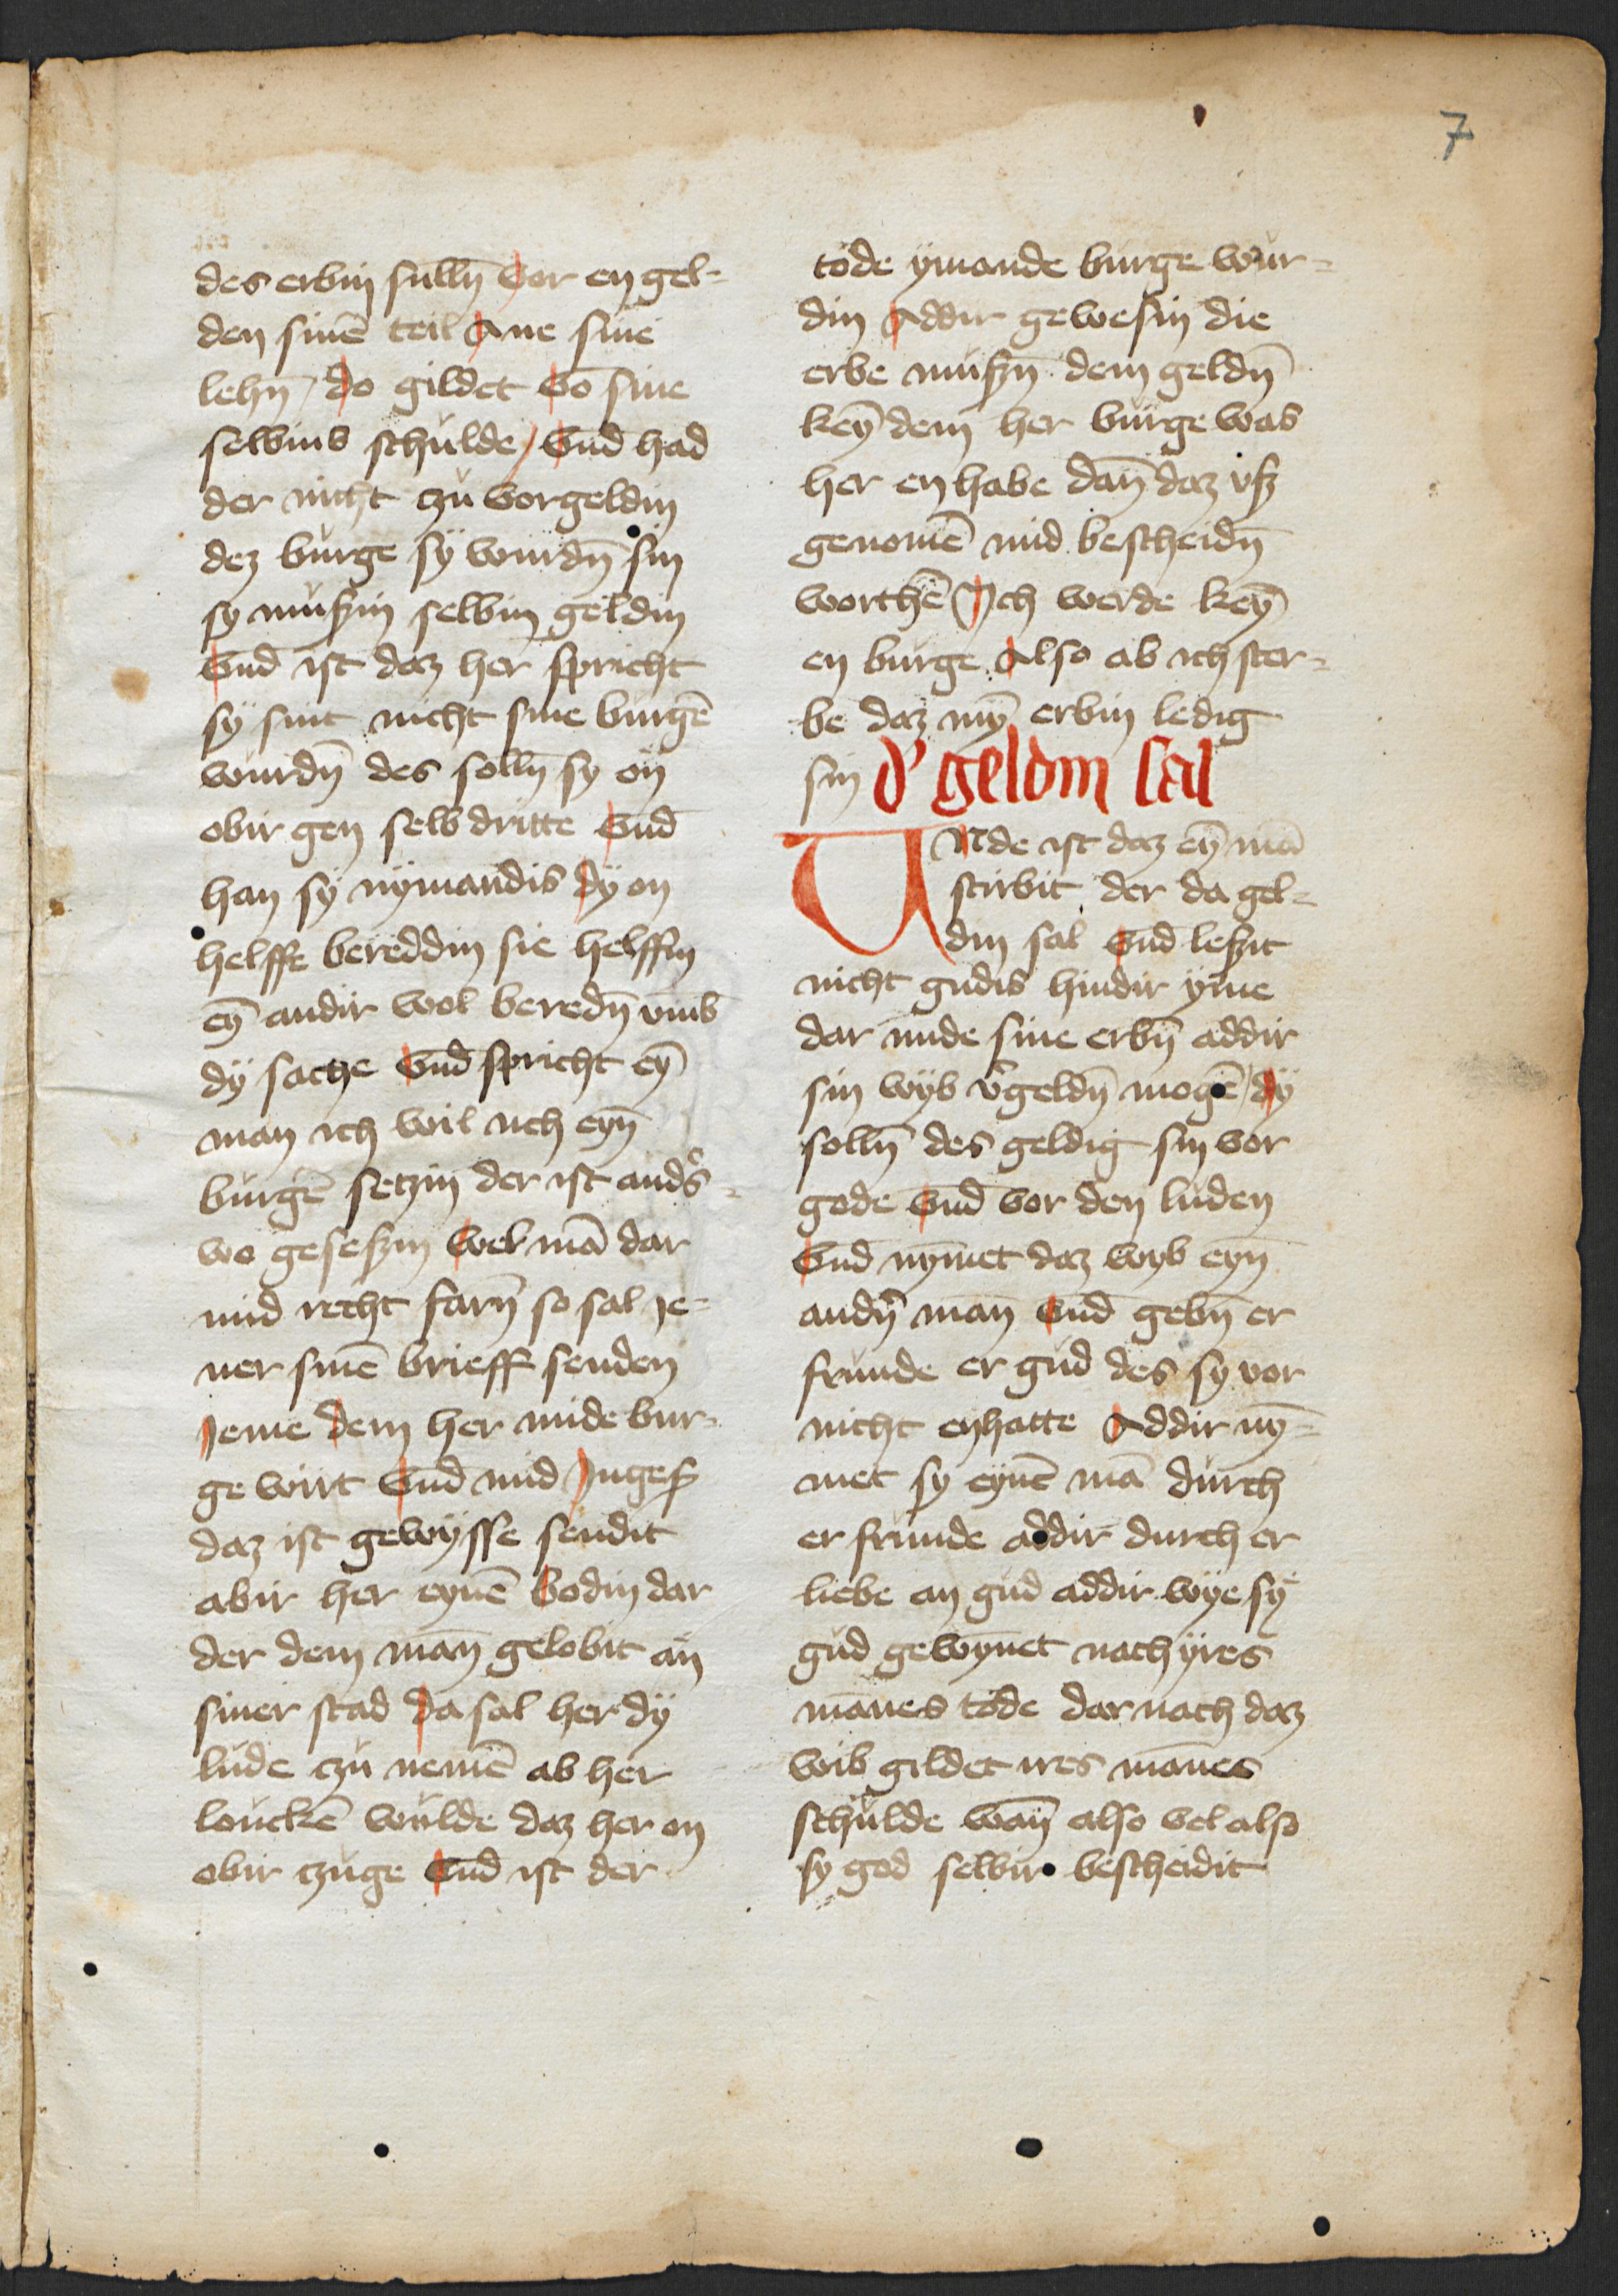 7
des erbin sulln̄ vor en gel-
den sinē teil Ane sine
lehn̄ / do gildet vō sine
selbins schulde / Vnd had
der nicht czu vorgeldin
dez burge sÿ wurdn̄ sin
sy mußin selbin geldin
Vnd ist daz her spricht
sÿ sint nicht sine burgē
wurdn̄ des solln̄ sy on
obir gen selb dritte Vnd
han sÿ nÿmandis dÿ on
helffe bereddin sie helffin
eȳ andir wol beredn̄ vmb
dÿ sache Vnd spricht eȳ
man ich wil uch eyn̄
burgē setzin der ist anders-
wo geseßin wel mā dar
mid recht farn̄ so sal je-
ner sinē brieff senden
Jeme dem her mide bur-
ge wirt Vnd mid Ingeß
daz ist gewÿsse sendit
abir her eynē bodin dar
der dem man̄ gelobit an
siner stad da sal her dÿ
lude czu nemē ab her
louckē wulde daz her on
obir czuge Vnd ist der
tode ÿmande burge wur-
din Addir gewesin die
erbe mußn̄ dem geldn̄
keȳ dem her burge was
her en habe dan̄ daz vß
genomē mid bescheidn̄
worthē Ich werde keȳ
en burge Also ab ich ster-
be daz mȳ erbin ledig
sin d' geldin sal
Vnde ist daz eȳ mā
stirbit der da gel-
din sal Vnd leßit
nicht gudis hindir ÿme
dar mide sine erbn̄ addir
sin wÿb v'geldn̄ mogē / dÿ
solln̄ des geldig sin vor
gode Vnd vor den luden
Vnd nȳmet daz wyb eyn̄
andn̄ man̄ Vnd gebn̄ er
frunde er gud des sy vor
nicht enhatte Addir nȳ-
met sy eynē mā durch
er frunde addir durch er
liebe an gud addir wÿe sÿ
gud gewȳnet nach ÿres
mānes tode dar nach daz
wib gildet ires mānes
schulde wan̄ also vel also
sy god selbir bescheidit